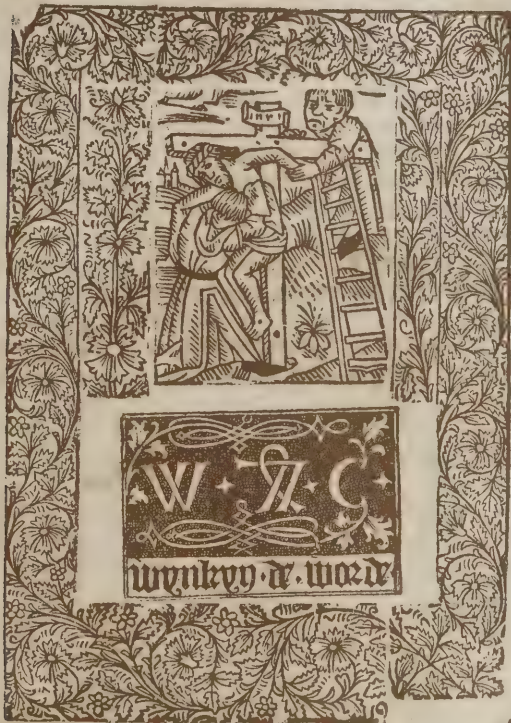 W 74 C
wynkyn · de · worde